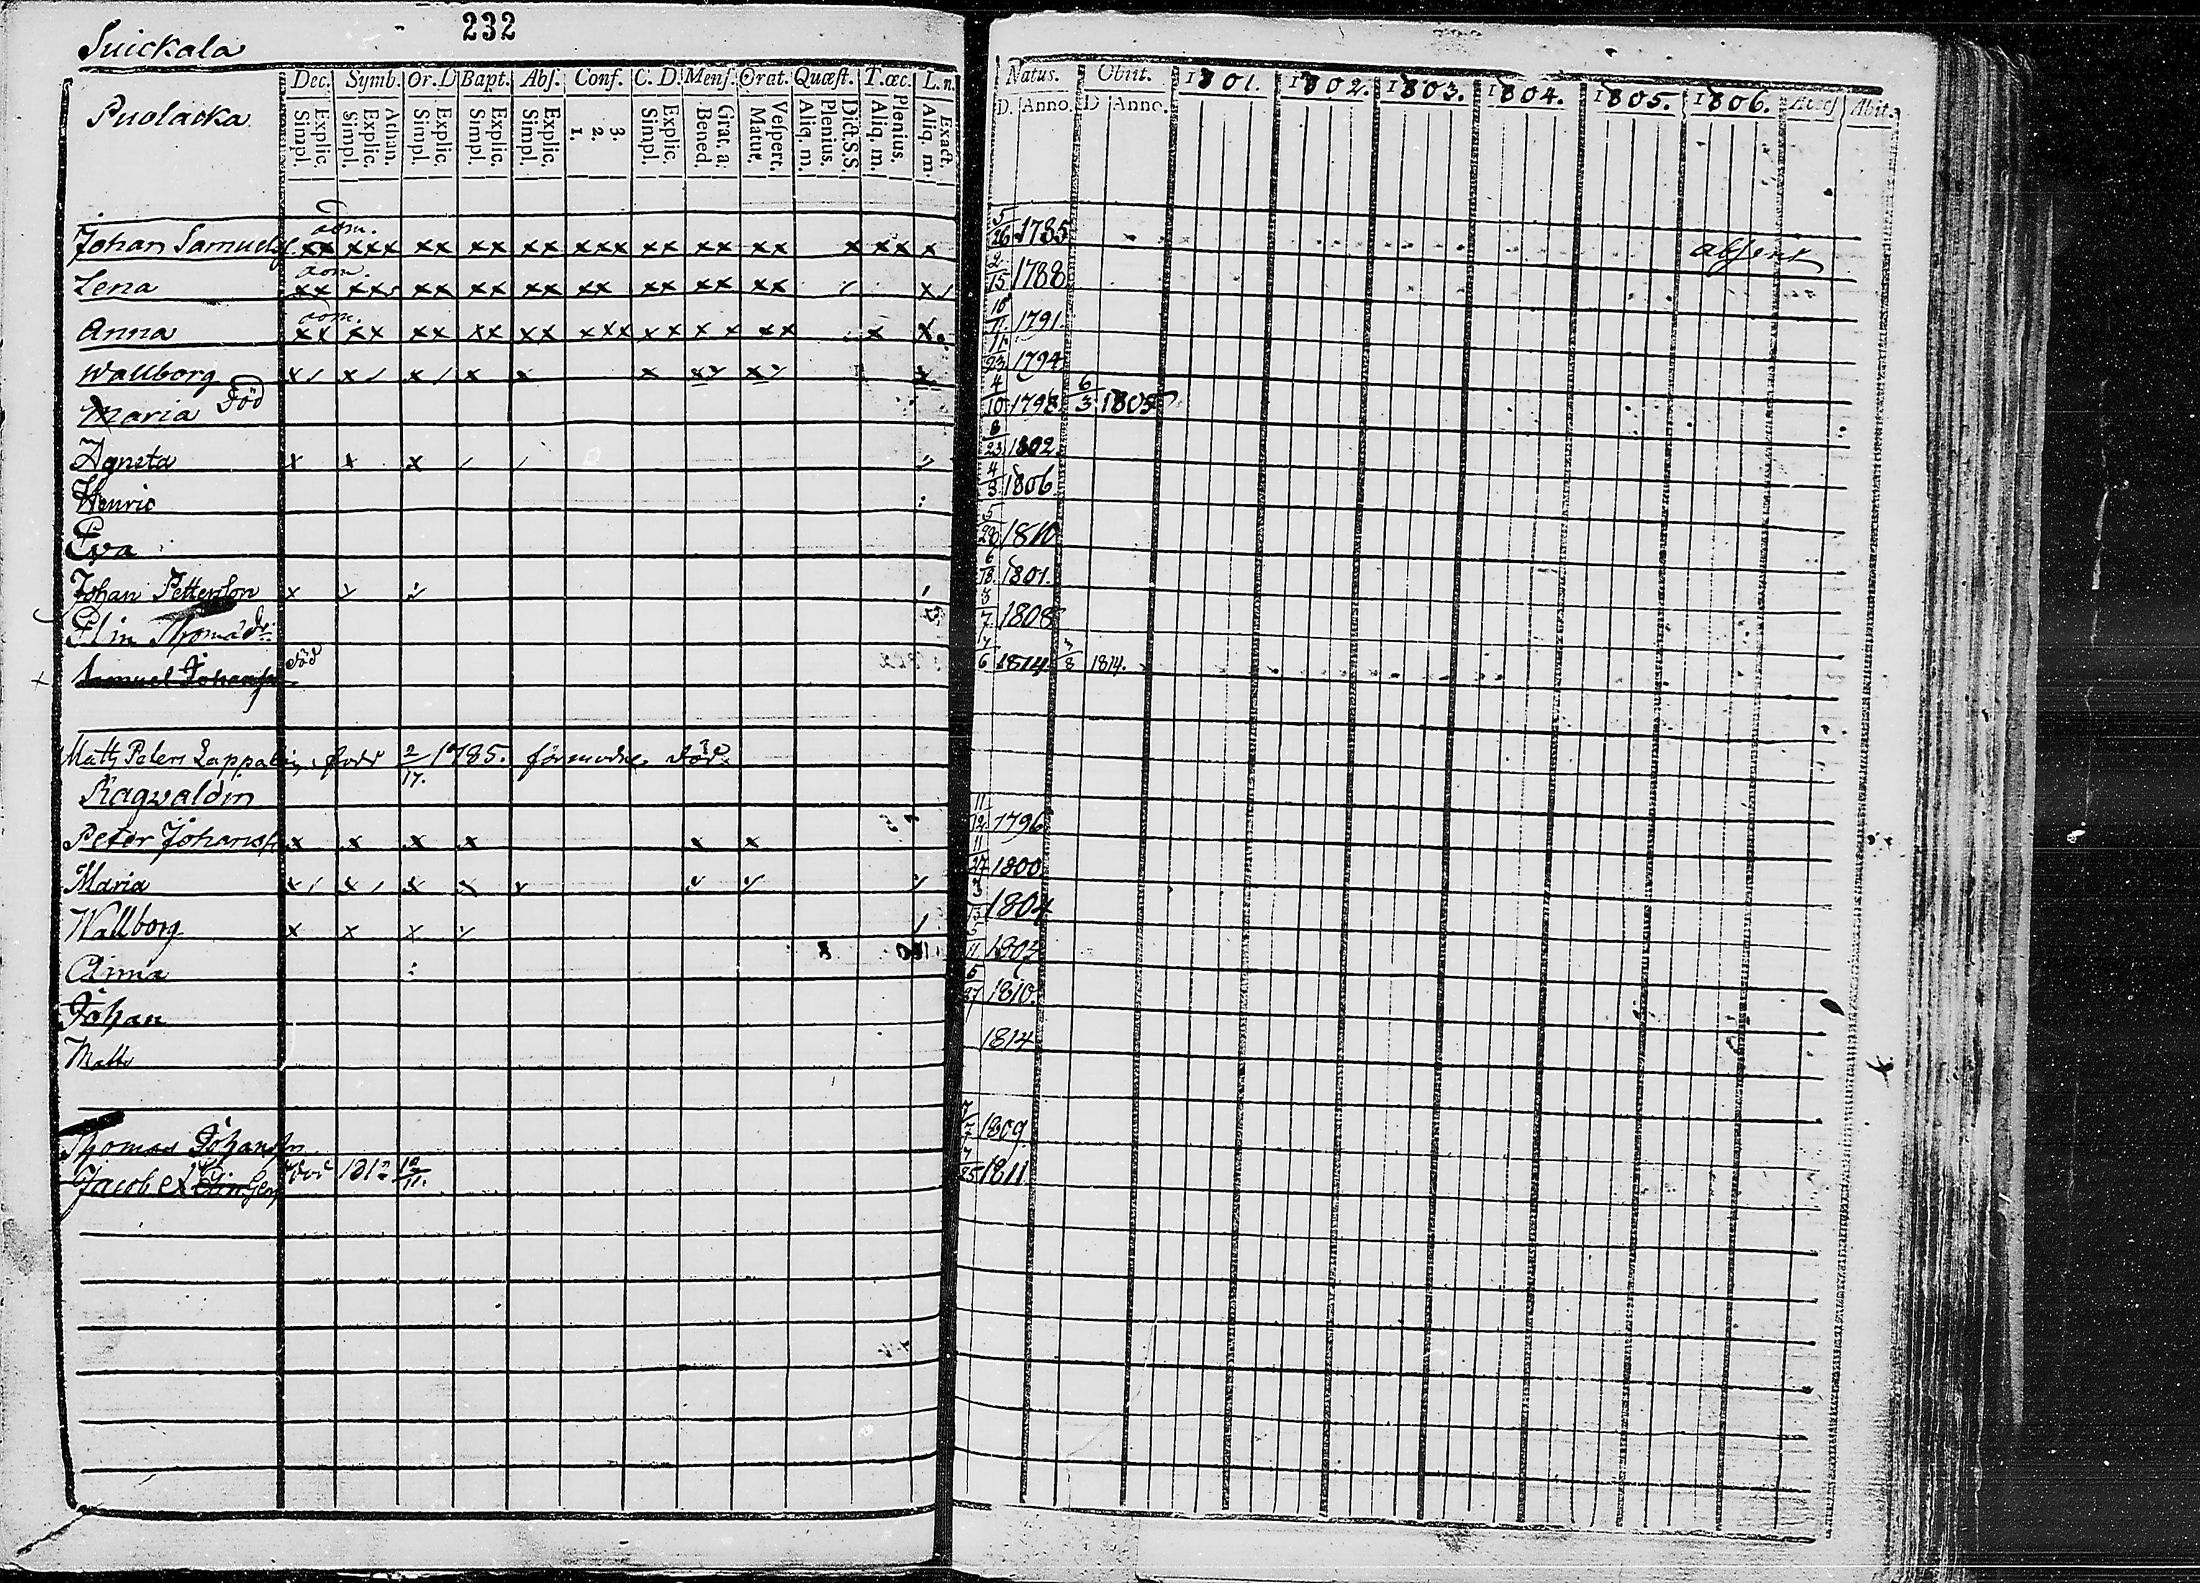 232
Suickala
Dec. Symb. Or. D Bapt. Abſ. Conf. C. D. Menſ. Orat. Quæſt. T. œc. L. n. Natus. Obiit. 1801. 1802. 1803. 1804. 1805. 1806. Acceſ Abit.
Puolacka Explic. Simpl. Athan. Explic. Simpl. Explic. Simpl. Explic. Simpl. Explic. Simpl. 3. 2. 1. Explic. Simpl. Grat. a. Bened. Veſpert. Matut. Dict. S.S. Plenius. Aliq. m. Plenius, Aliq. m. Exact. Aliq. m. D. Anno. D Anno.
aom.
Johan Samuelss. xx xxx xx xx xx xxx xx xx xx x xx x 5/26 1785 absent
aom.
Lena xx xx xx xx xx xx xx xx 2/15 1788
aom.
Anna xx xx xx xx xx xxx xx xx xx x x 10/11 1791.
Wallborg x/ x/ x/ x x x 11/23 1794
Maria död 4/10 1798 6/3 1805
Agneta x x x / / 8/23 1802.
Henric 4/3 1806.
Eva 5/28 1810
Johan Petterson x 6/18. 1801.
Elin Thomädr 8/7 1808
Samuel Johanss död 1/6 1814 3/8 1814.
Matts Peters Lappalain född 2/17. 1785. förmodl. död.
Ragvaldin
Peter Johanss. x x x x x x 11/12 1796
Maria 11/27 1800
Wallborg x x x 3/13 1804
Anna 5/11 1807
Johan 6/27 1810.
Matts 1814
Thomas Johanssn 1809.
Jacob död 1812 12/11. 7/25 1811.